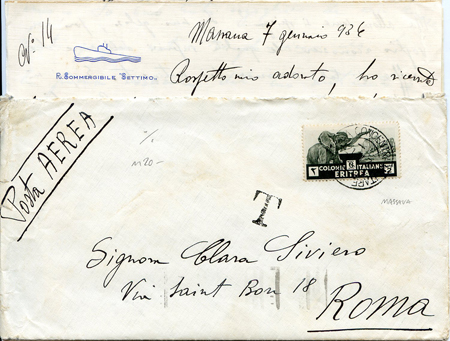 N° 14
Massaua 7 gennaio 936
R. Sommergibile "Settimo"
Rospetto mio adorato, ho ricevuto
Posta AEREA
M20-
COLONIE ITALIANE
ERITREA
MASSAUA
T
Signora Clara Siviero
Via Saint Bon 18
Roma